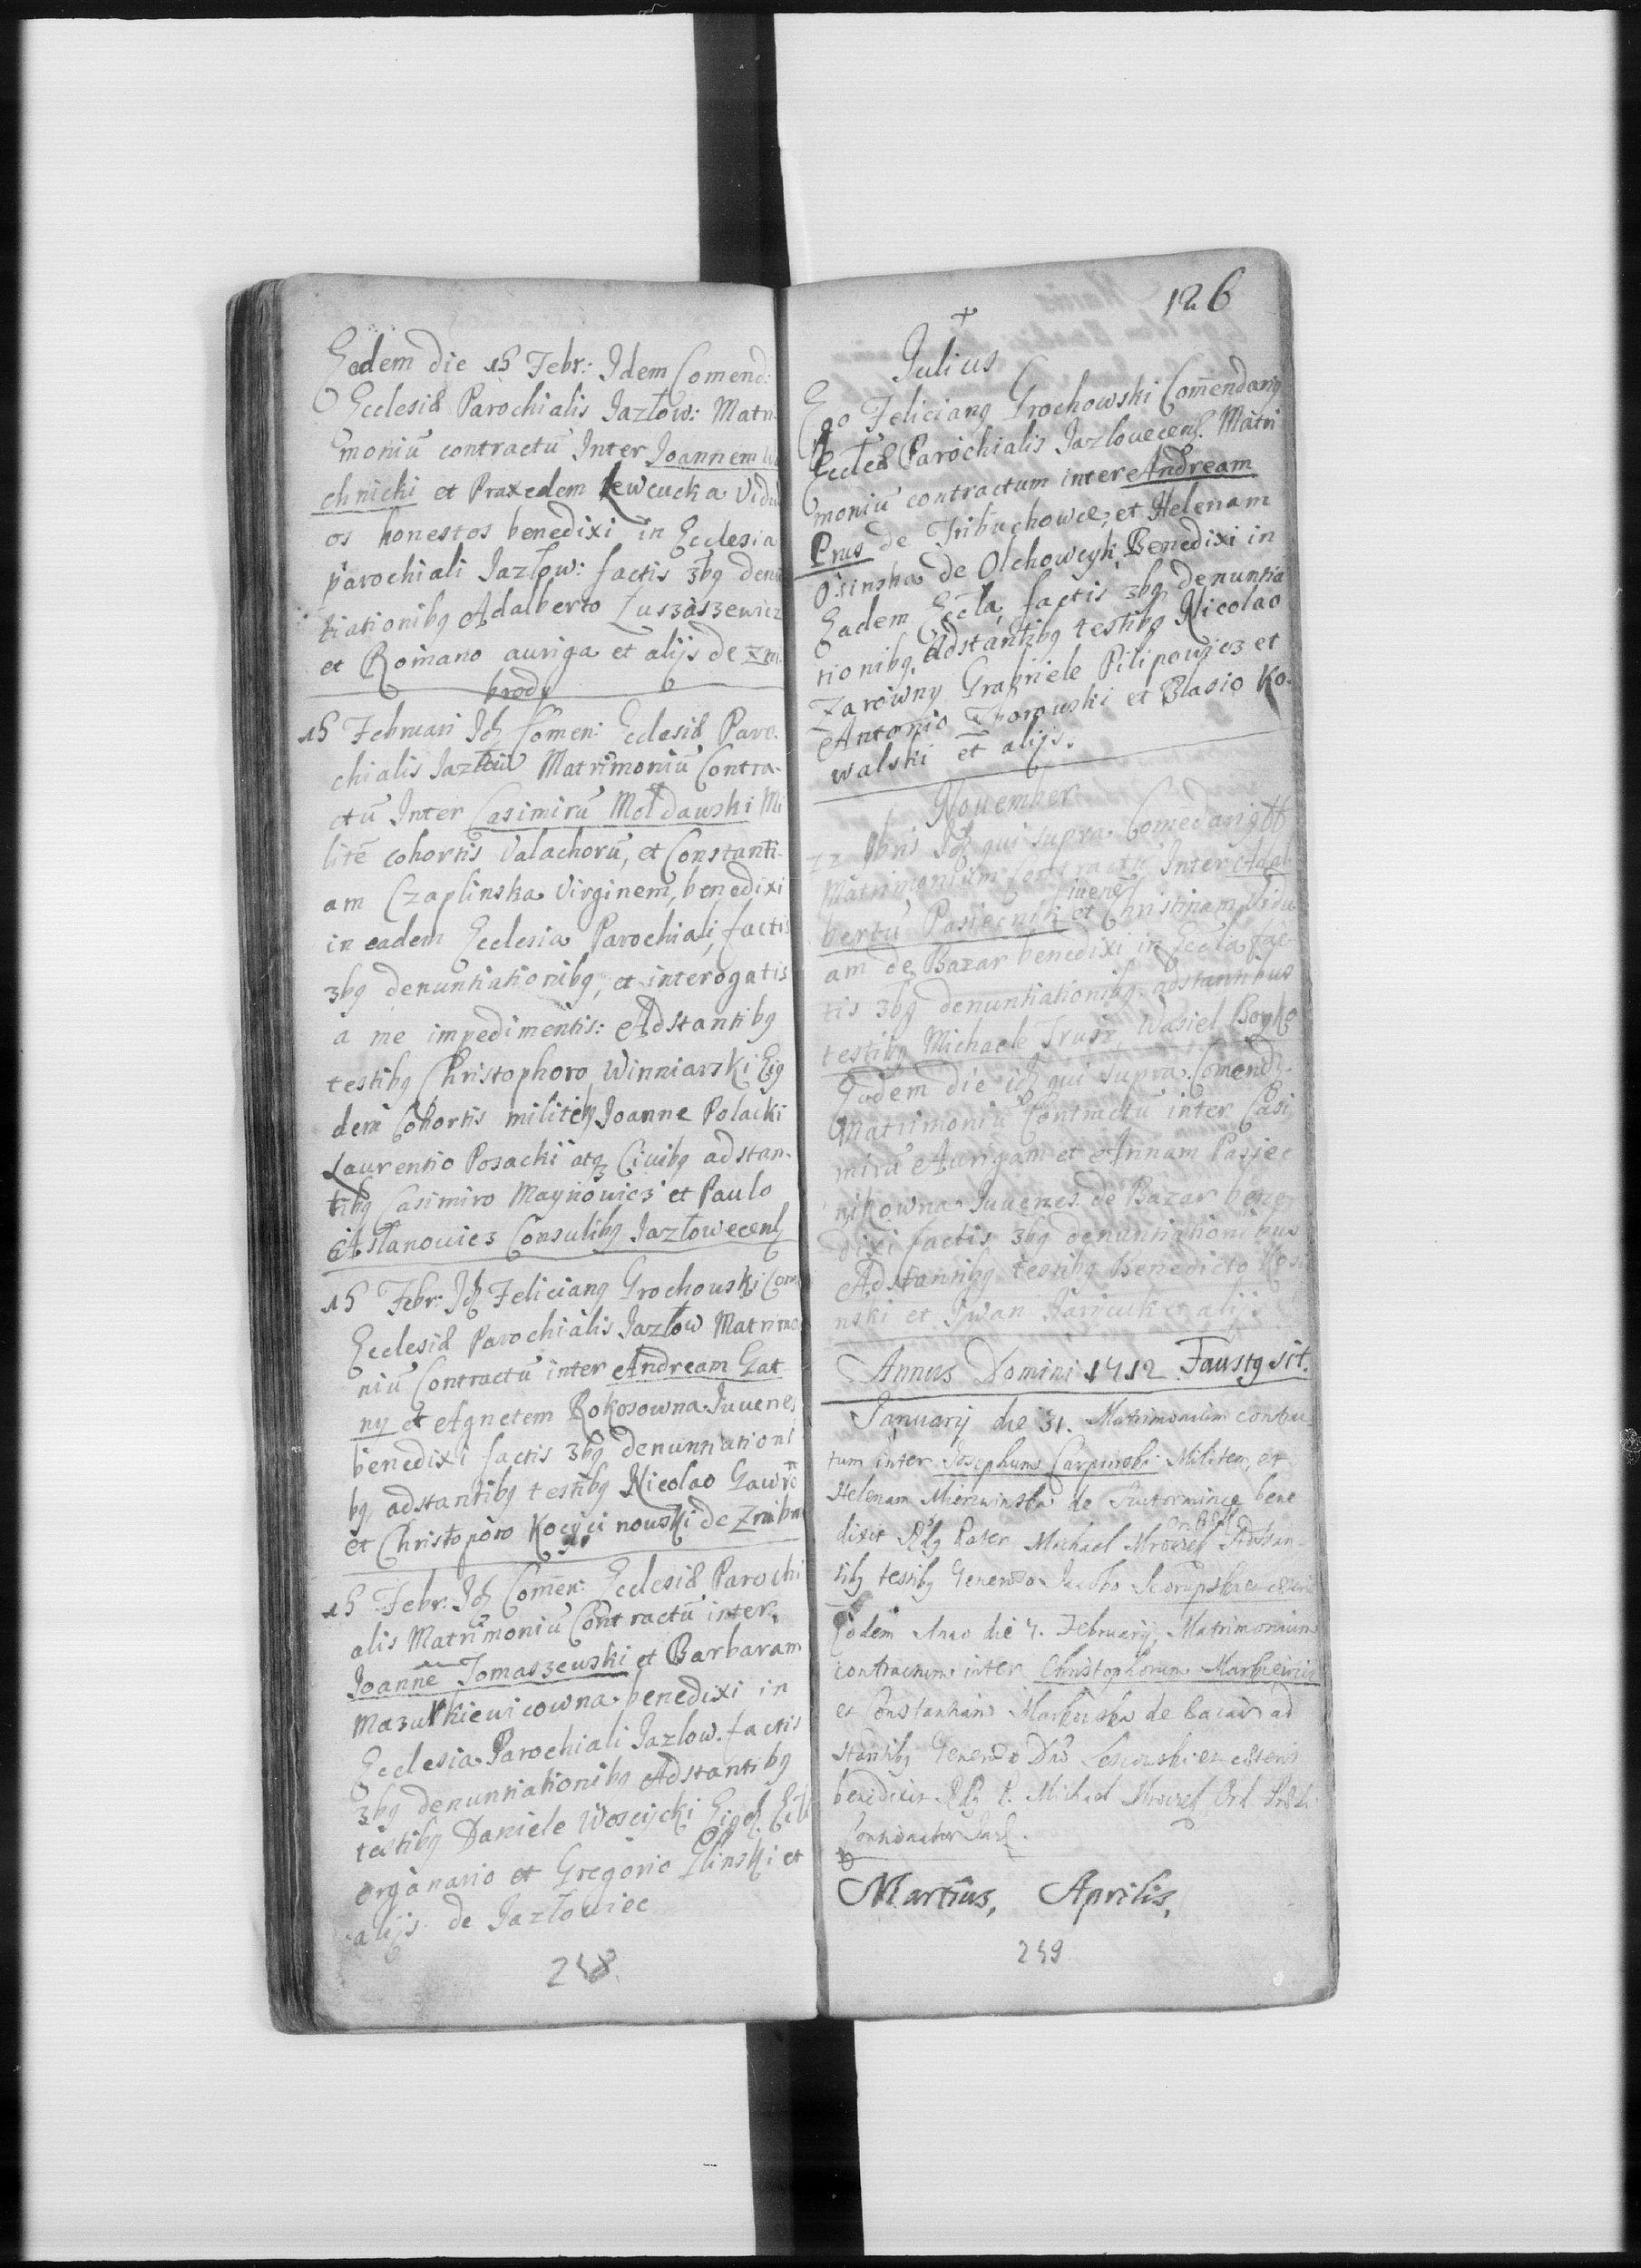 Eodem die 15 Febr: Idem Comend:
Ecclesiæ Parochialis Jazłow: Matri-
moniũ contractũ Inter Joannem
chnicki et Praxedem Lewcucka Vidu
os honestos benedixi in Ecclesia
parochiali Jazłow: factis 3bq denu
tiationibq Adalberto Zuszaszewicz
et Romano auriga et alijs de Zni-
brody
15 Februari Idẽ Comen: Ecclesiæ Paro-
chialis Jazłow Matrimoniũ Contra-
ctũ Inter Casimirũ Mołdawski Mi
litẽ cohortis Valachorũ, et Constanti-
am Czaplinska Virginem, benedixi
in eadem Ecclesia Parochiali, factis
3bq denuntiationibq, et interogatis
a me impedimentis: Adstantibq
testibq Christophoro Winniarski Eiq
dem Cohortis militib Joanne Polacki
Laurentio Posacki atq Ciuibq adstan-
tibq Casimiro Maynowicz et Paulo
Astanouicz Consulibq Jazłowecenſ
15 Febr: Idẽ Felicianq Grochouski Com
Ecclesiæ Parochialis Jazłow Matrimo
niũ Contractũ inter Andream Gat
ny et Agnetem Rokosowna Juuenes
benedixi factis 3bq denuntiationi
bq, adstantibq testibq Nicolao Gawro
et Christoporo Kocijcinouski de Znibro
15 Febr: Idẽ Comẽn: Ecclesiæ Parochi
alis Matrimoniũ Contractũ inter
Joannẽ Tomaszewski et Barbaram
Mazurkiewicowna benedixi in
Ecclesia Parochiali Jazlow. factis
3bq denuntiationibq Adstantibq
testibq Daniele Woscijcki Eiqd Eccl
organario et Gregorio Glinski et
alijs de Jazłowiec
248
126
Julius
Ego Felicianq Grochowski Com̃endariq
Eccleæ Parochialis Jazlouecenſ. Matri
moniũ contractum inter Andream
Prus de Tribuchowce, et Helenam
Osinska de Olchowcyk, Benedixi in
Eadem Eccla, factis 3bq, denuntia
tionibq, Adstantibq testibq Nicolao
Zarowny Grabriele Pilipowicz et
Antonio Zborouski et Blasio Ko-
walski et alijs.
November
22 9bris Idẽ qui supra Comẽdariq
Matrimonium Contractũ Inter Adal
bertũ Pasiecnik iuenẽ et Christinam Vidu
am de Bazar benedixi in Eccla fac-
tis 3bq denuntiationibq adstantibus
testibq Michaele Trusz, Wasiel Boyko
Eodem die idẽ qui supra Comend.
Matrimoniũ Contractũ inter Casi
mirũ Aurigam et Annam Pasiec
nikowna Juuenes de Bazar bene-
dixi factis 3bq denuntiationibus
Adstantibq testibq Benedicto
nski et Iwan et alijs
Annus Domini 1712 Faustq sit.
January die 31. Matrimonium contrac
tum inter Josephum Carpinski Militem, et
Helenam Mierzwinska de bene
dixit Rdq Pater Michael Mroczek Adstan-
tibq testibq Generoso Jacobo
Eodem Anno die 7. February, Matrimonium
contractum inter Christophorum
et Constantiam Markowska de Bazar ad
stantibq Generoso Dno Lescowski et cæteris
benedixit Rdq P. Michael Mroczek Ord. Præd.
Martius, Aprilis,
249